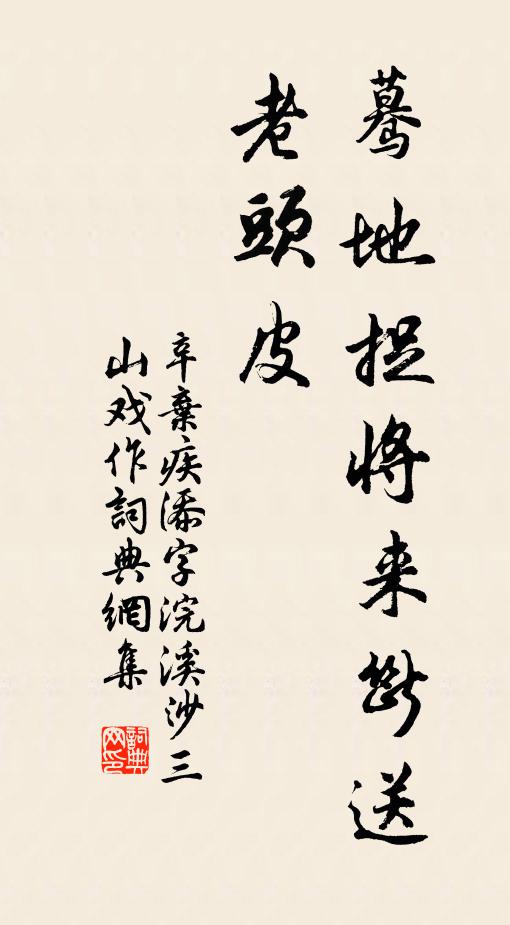 驀地捉將来斷送
老頭皮
辛棄疾添字浣溪沙三
山戏作詞典網集
詞典
网印